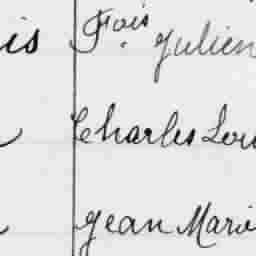 is Fois Julien
Charles Lou
Jean Marie